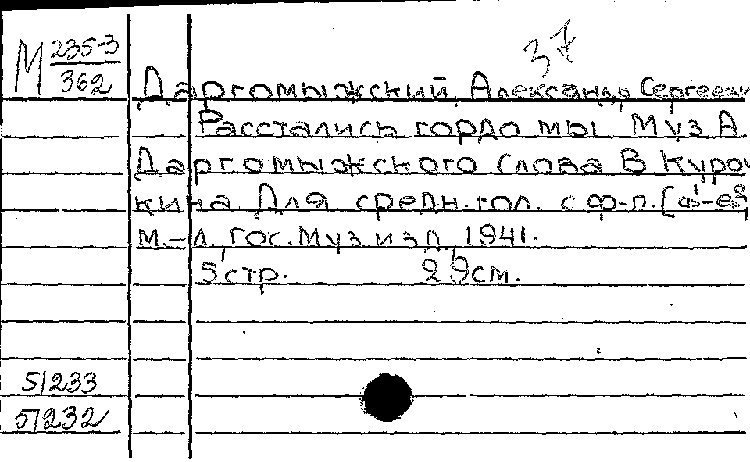 37
М 235-3
362
Даргомыжский, Александр Сергееви
Расстались гордо мы Муз А
Даргомыжского Слова В Куроч
кина. Для средн. гол. с ф-п. [ф-ей]
М.-Л. Гос. Муз изд, 1941.
5 стр. 29 см.
51233
51232